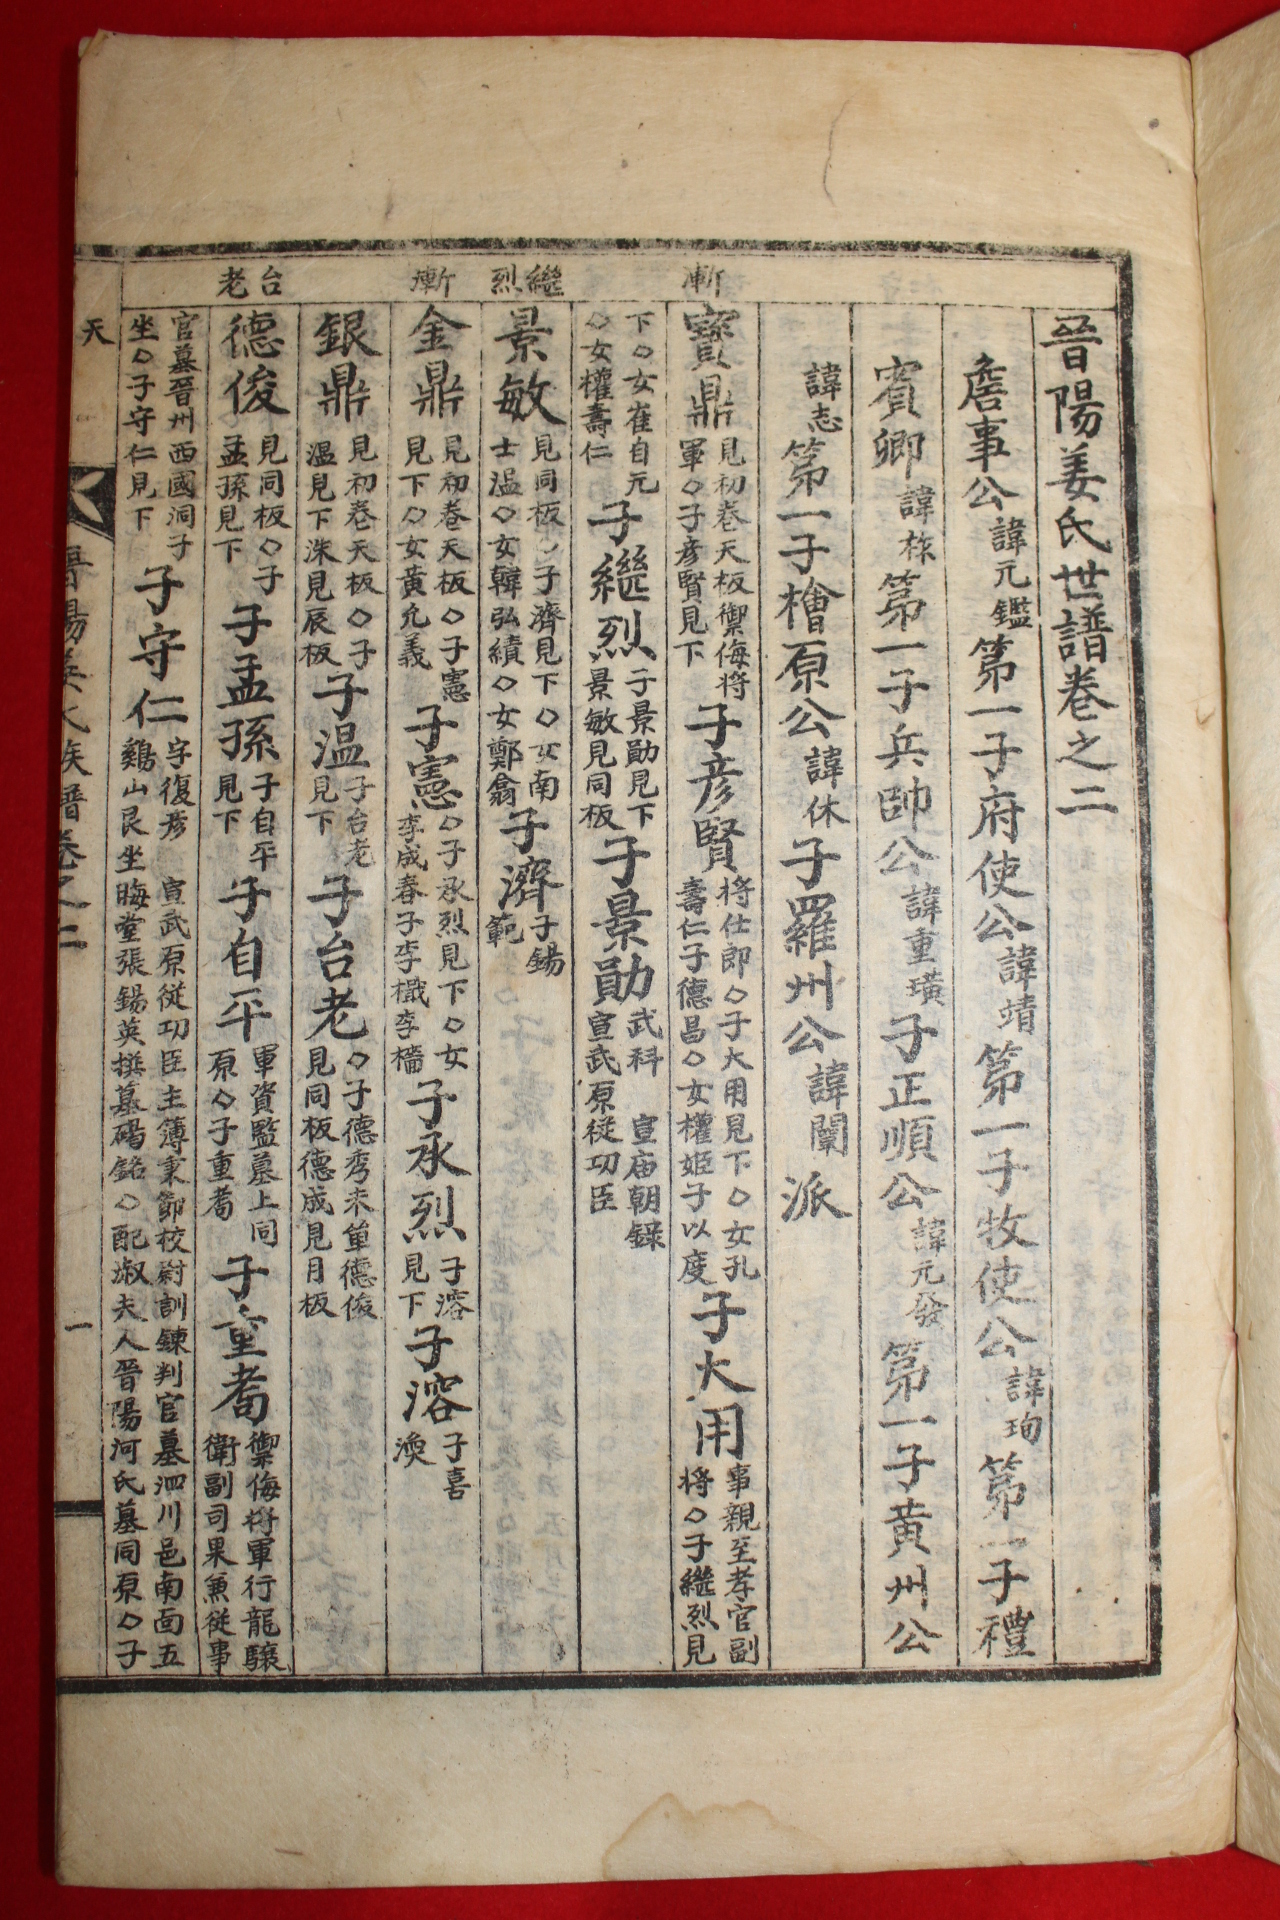 晉陽姜氏世譜卷之二
詹事公諱元鑑第一子府使公諱靖第一子牧使公諱珣第一子禮
賓卿諱栋第一子兵帥公諱重璜子正順公諱元發第一子黃州公
諱志第一子檜原公諱休子羅州公諱闡派
漸
寶鼎見初卷天板禦侮將軍◇子彦賢見下子彦賢將仕郎◇子大用見下◇女孔壽仁子德昌◇女權姬子以度子大用事親至孝官副將◇子繼烈見
下◇女崔自元◇女權壽仁子繼烈子景勛見下景敏見同板子景勛武科 宣庙朝錄宣武原從功臣
繼烈
景敏見同板◇子濟見下◇女南士溫◇女韓弘績◇女鄭翕子濟子錫範
漸
金鼎見初卷天板◇子憲見下◇女黃允義子憲◇子承烈見下◇女李成春子李檝李檣子承烈子溶見下子溶子喜渙
銀鼎見初卷天板◇子溫見下洙見辰板子溫子台老見下子台老◇子德秀未單德俊見同板德成見月板
台老
德俊見同板◇子孟孫見下子孟孫子自平見下子自平軍資監墓上同原◇子重耈子重耈禦侮將軍行龍驤衛副司果兼從事
官墓晉州西國洞子坐◇子守仁見下子守仁字復彦 宣武原從功臣主簿秉節校尉訓鍊判官墓泗川邑南面五鷄山艮坐晦堂張錫英撰墓碣銘◇配淑夫人晉陽河氏墓同原◇子
天
晉陽姜氏族譜卷之二
一